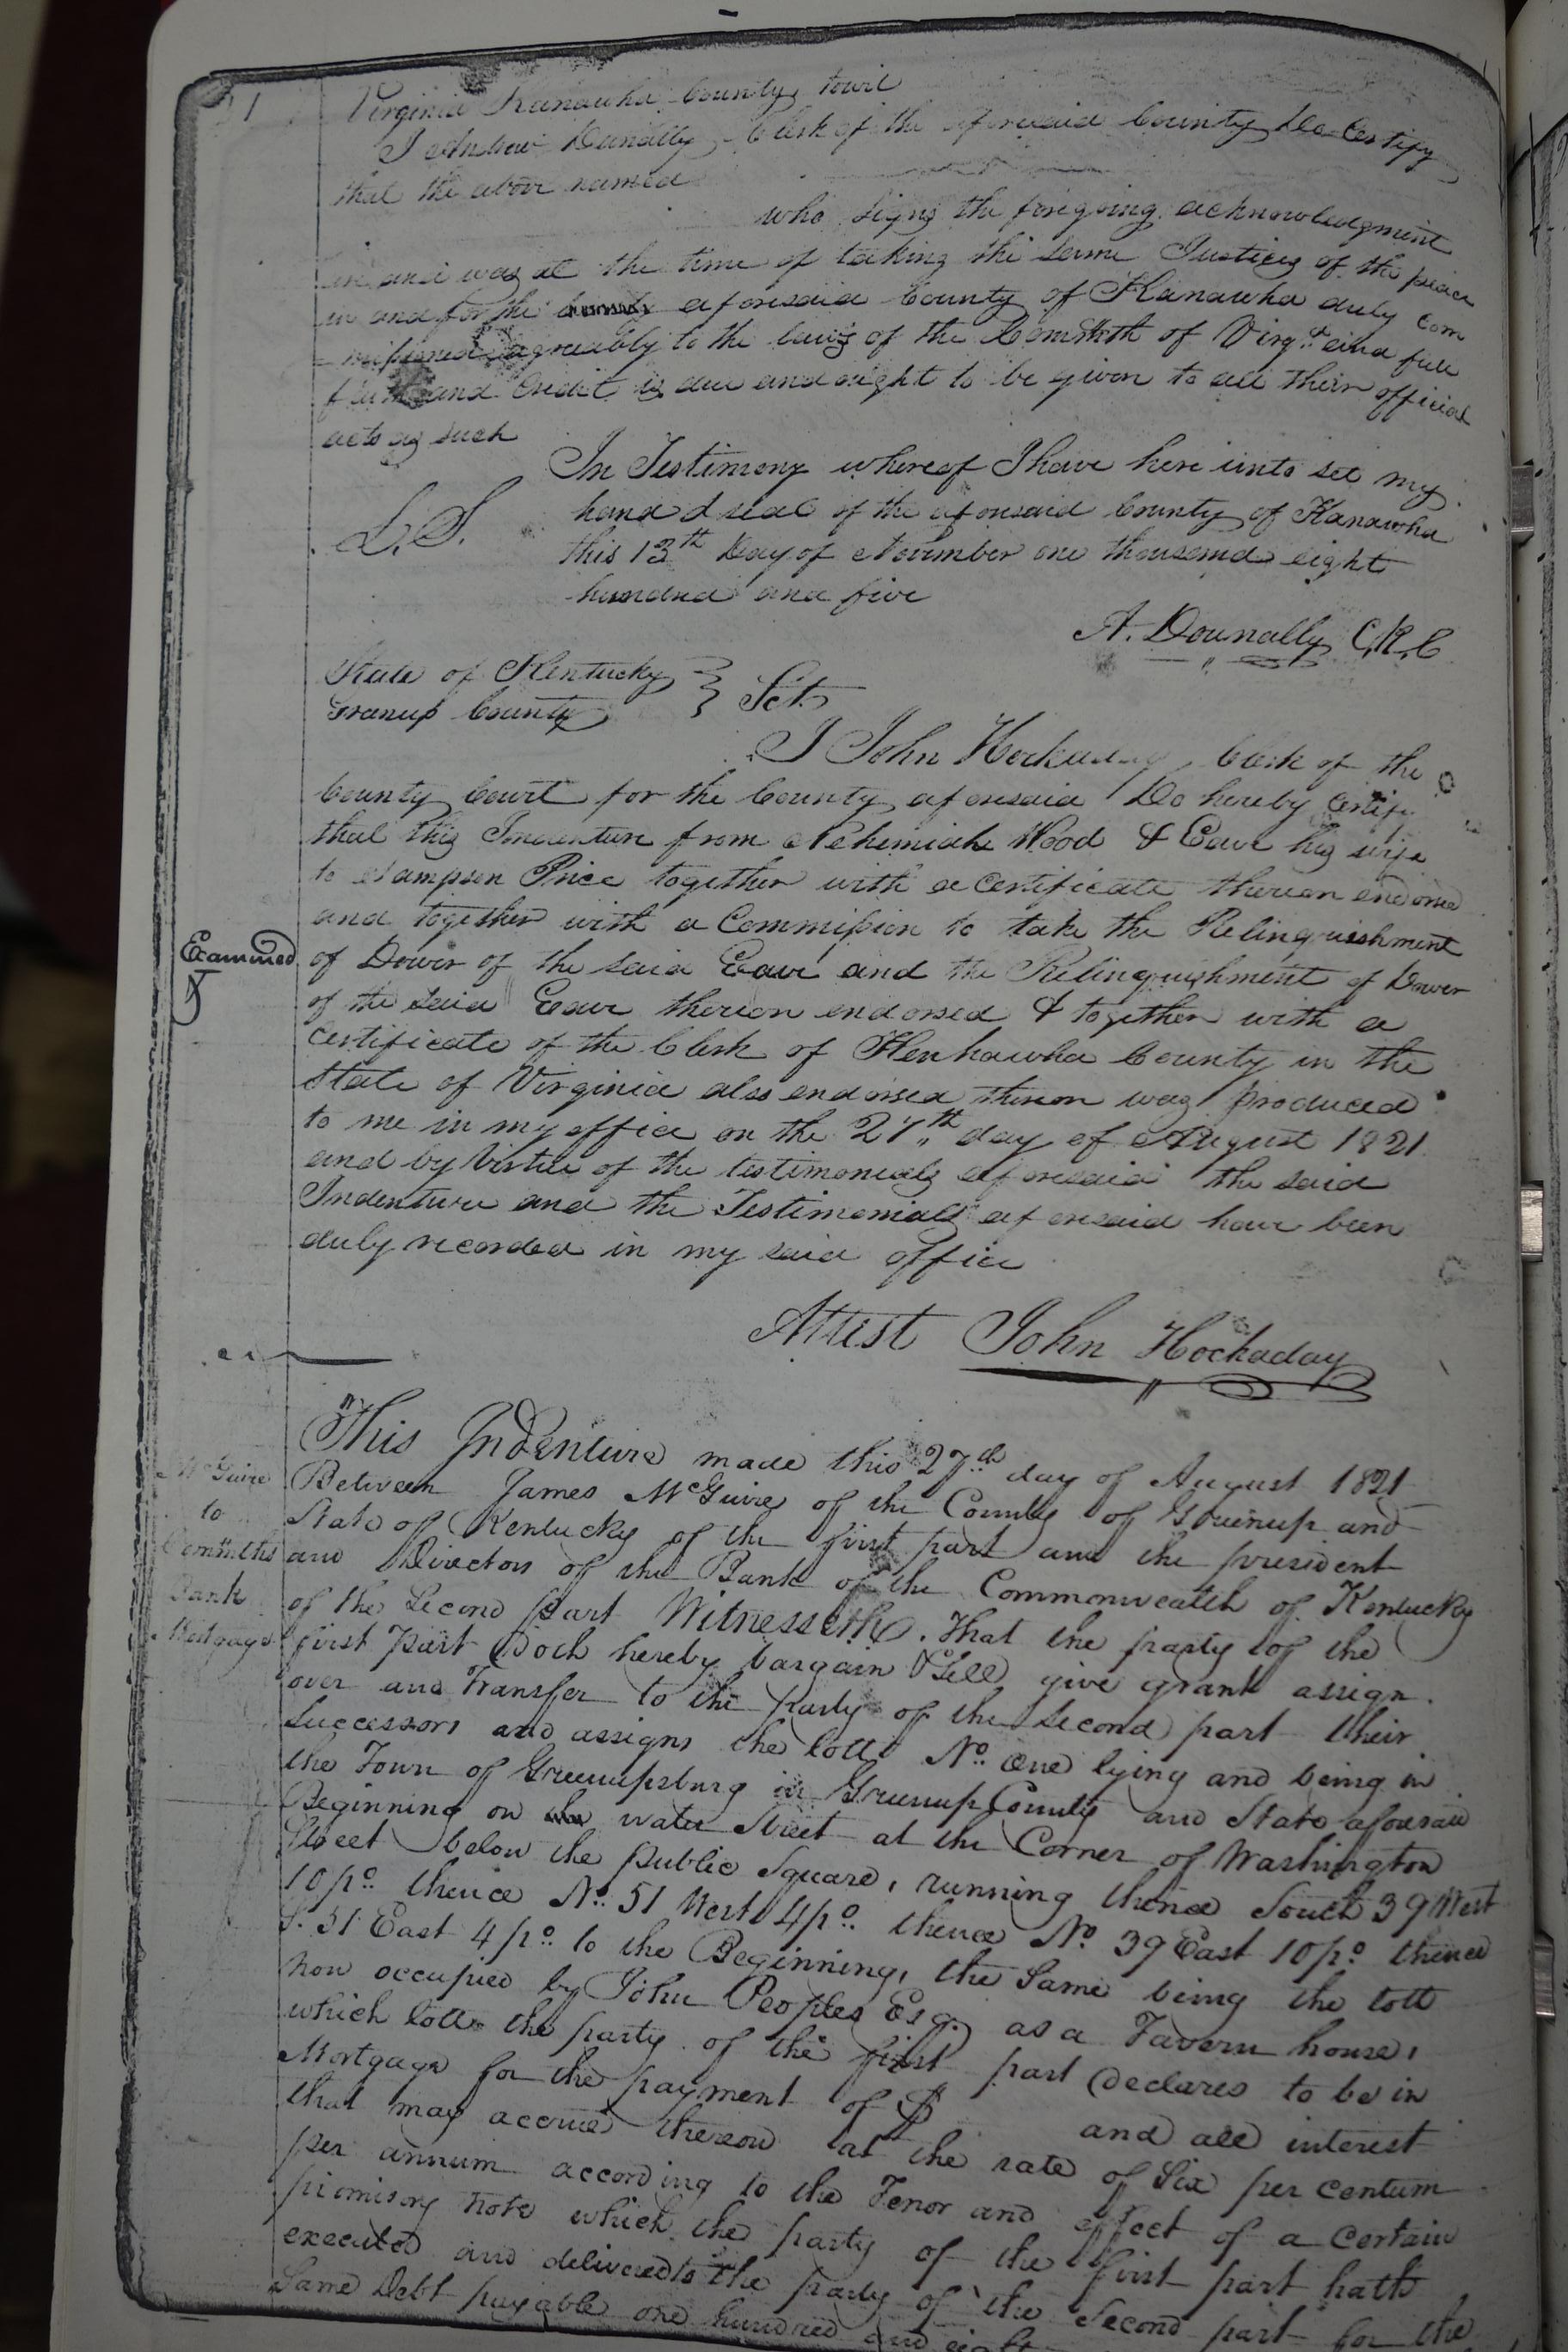 Virginia Kanawha County towit
I Andrew Donnally, Clerk of the aforesaid County Do Certify
that the above named
who signs the foregoing acknowledgment
and was at the time of taking the same Justices of the peace
in and for the aforesaid County of Kanawha duly com
missioned agreeably to the laws of the Comthth of Virga and full
faith and Credit is due and ought to be given to all their official
acts as such
In Testimony whereof I have here unto set my
L.S.
hand & seal of the aforesaid County of Kanawha
this 13th Day of November one thousand eight
hundred and five
A. Donnally C.K.C
State of Kentucky } Sct
Granup County
I John Hockaday, Clerk of the
County Court for the County aforesaid Do hereby Certify
that this Indenture from Nehemiah Wood & Eave his wife
to Sampson Price together with a certificate thereon endorsed
and together with a Commission to take the Relinquishment
Examined
of Dower of the said Eave and the Relinquishment of Dower
of the said Eave thereon endorsed & together with a
certificate of the Clerk of Kenhawha County in the
State of Virginia also endorsed thereon was produced
to me in my office on the 27th day of August 1821
and by Virtue of the testimonials aforesaid the said
Indenture and the Testimonials aforesaid have been
duly recorded in my said office
Attest John Hockaday
This Indenture made this 27th day of August 1821
McGuire
to
Bank
Mortgage
Between James McGuire of the County of Greenup and
State of Kentucky of the first part and the president
and Directors of the Bank of the Commonwealth of Kentucky
of the Second part Witnesseth. That the party of the
first part doth hereby bargain & Sell give grant assign
over and Transfer to the party of the second part their
Successors and assigns the lott No. One lying and being in
the Town of Greenupsburg in Greenup County and State aforesaid
Beginning on water Street at the Corner of Washington
Street below the public Square, running thence South 39 West
10 po. thence No. 51 West 4 po. thence No. 39 East 10 po. thence
S. 51 East 4 po. to the Beginning, the Same being the lott
now occupied by John Peoples Esq. as a Tavern house,
which lott the party of the first part declares to be in
Mortgage for the payment of $ and all interest
that may accrue thereon at the rate of Six per centum
per annum according to the Tenor and effect of a Certain
promisory note which the party of the first part hath
executed and delivered to the party of the Second part for the
Same Debt payable one hundred and eight